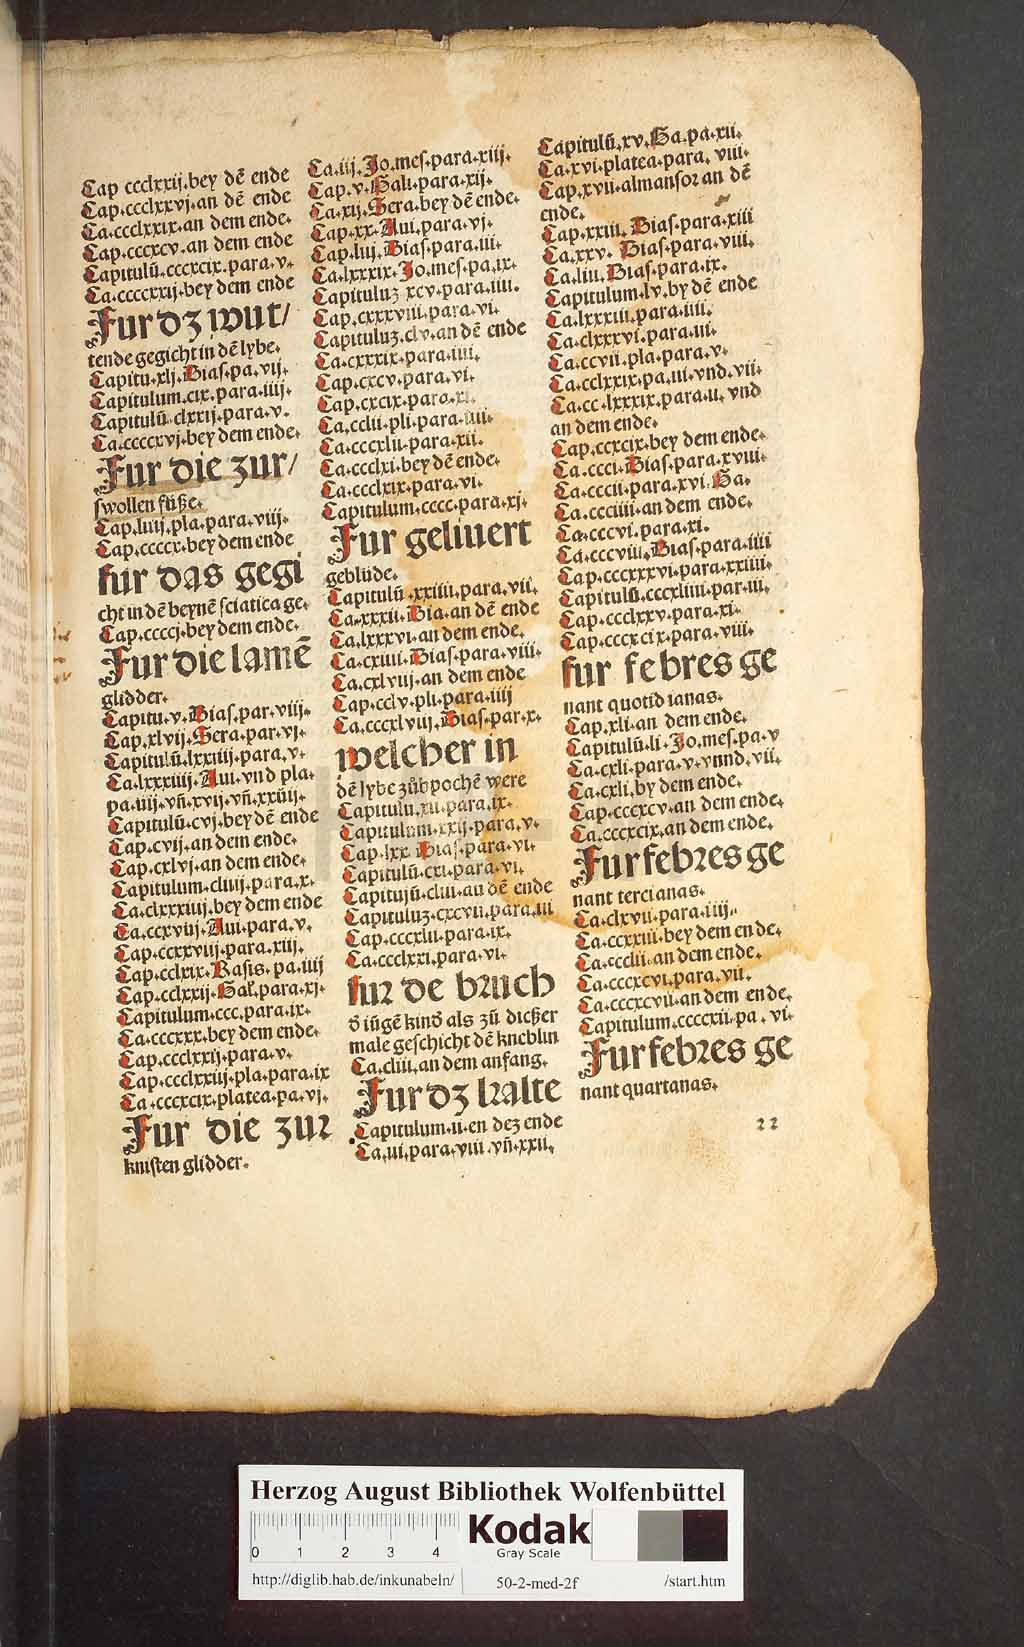 Cap ccclxxij.bey dē ende
Cap.ccclxxvj.an dē ende
Ca.ccclxxix.an dem ende.
Cap.cccxcv.an dem ende
Capitulū.cccxcix.para.v.
Ca.ccccxxij.bey dem ende
Fur dz wut/
tende gegicht in dē lybe.
Capitu.xlj.Dias.pa.vij.
Capitulum.cix.para.iiij.
Capitulū.clxxij.para.v.
Ca.ccccxvj.bey dem ende.
Fur die zur/
swollen füße.
Cap.luij.pla.para.viij.
Cap.ccccx.bey dem ende
fur das gegi
cht in dē beynē sciatica ge.
Cap.ccccj.bey dem ende.
Fur die lamē
glidder.
Capitu.v.Dias.par.viij.
Cap.xlvij.Sera.par.vj.
Capitulū.lxxiiij.para.v.
Ca.lxxxiiij.Aui.vnd pla.
pa.iiij.vñ.xvij.vñ.xxüij.
Capitulū.cvj.bey dē ende
Cap.cvij.an dem ende.
Cap.cxlvj.an dem ende.
Capitulum.cluij.para.x.
Ca.clxxxiiij.bey dem ende
Ca.ccxviij.Aui.para.v.
Cap.ccxxviij.para.xiij.
Cap.cclxix.Rasis.pa.iiij
Cap.cclxxij.Gal.para.xj.
Capitulum.ccc.para.ix.
Ca.cccxxx.bey dem ende.
Cap.ccclxxij.para.v.
Cap.ccclxxiij.pla.para.ix
Ca.cccxcix.platea.pa.vj.
Fur die zur
knisten glidder.
Ca.iij.Jo.mes.para.xiij.
Cap.v.Gali.para.xij.
Ca.xij.Sera.bey dē ende.
Cap.xx.Aui.para.vj.
Cap.luj.Dias.para.iii.
Ca.lxxxix.Jo.mes.pa.ix.
Capituluz xcv.para.iiii.
Cap.cxxxviii.para.vi.
Capituluz.clv.an dē ende
Ca.cxxxix.para.iiii.
Cap.cxcv.para.vi.
Cap.cxcix.para.xi.
Ca.cclii.pli.para.iiii.
Ca.cccxlii.para.xii.
Ca.ccclxi.bey dē ende.
Ca.ccclxix.para.vi.
Capitulum.cccc.para.xj.
Fur geliuert
geblüde.
Capitulū.xxiiii.para.vii.
Ca.xxxii.Dia.an dē ende
Ca.lxxxvi.an dem ende.
Ca.cxiiii.Dias.para.viii.
Ca.cxlvij.an dem ende
Cap.cclv.pli.para.iiij
Ca.cccxlviij.Dias.par.x.
welcher in
dē lybe zübpochē were
Capitulu.xii.para.ix.
Capitulum.xxij.para.v.
Cap.lxx.Dias.para.vi.
Capitulū.cxi.para.vi.
Capitulū.cliii.an dē ende
Capituluz.cxcvii.para.iii
Cap.cccxlii.para.ix.
Ca.ccclxxi.para.vi.
fur de bruch
d iūgē kind als zū dickßer
male geschicht dē kneblin
Ca.cliii.an dem anfang.
Fur dz kalte
Capitulum.ii.en dez ende
Ca.iii.para.viii.vñ.xxii.
Capitulū.xv.Ga.pa.xii.
Ca.xvi.platea.para.viii.
Cap.xvii.almansor an dē
ende.
Cap.xxiii.Dias.para.xiii
Ca.xxv.Dias.para.viii.
Ca.liii.Dias.para.ix.
Capitulum.lv.by dē ende
Ca.lxxxiii.para.iiii.
Ca.clxxxvi.para.iii.
Ca.ccvii.pla.para.v.
Ca.cclxxix.pa.iii.vnd.vii.
Ca.cc.lxxxix.para.ii.vnd
an dem ende.
Cap.ccxcix.bey dem ende.
Ca.ccci.Dias.para.xviii.
Ca.cccii.para.xvi.Ga.
Ca.ccciiii.an dem ende.
Ca.cccvi.para.xi.
Ca.cccviii.Dias.para.iiii
Cap.cccxxxvi.para.xxiiii.
Capitulū.cccxliiii.par.iii.
Cap.ccclxxv.para.xi.
Cap.cccxcix.para.viii.
fur febres ge
nant quotidianas.
Cap.xli.an dem ende.
Capitulū.li.Jo.mes.pa.v
Ca.cxli.para.v.vnnd.vii.
Ca.cxli.by dem ende.
Cap.cccxcv.an dem ende.
Ca.cccxcix.an dem ende.
Fur febres ge
nant tercianas.
Ca.clxvii.para.iiij.
Ca.ccxxiii.bey dem ende.
Ca.cccliii.an dem ende.
Ca.cccxcvi.para.vii.
Ca.cccxcvii.an dem ende.
Capitulum.ccccxii.pa.vi.
Fur febres ge
nant quartanas.
22
Herzog August Bibliothek Wolfenbüttel
0 1 2 3 4
Kodak
Gray Scale
http://diglib.hab.de/inkunabeln/ 50-2-med-2f /start.htm